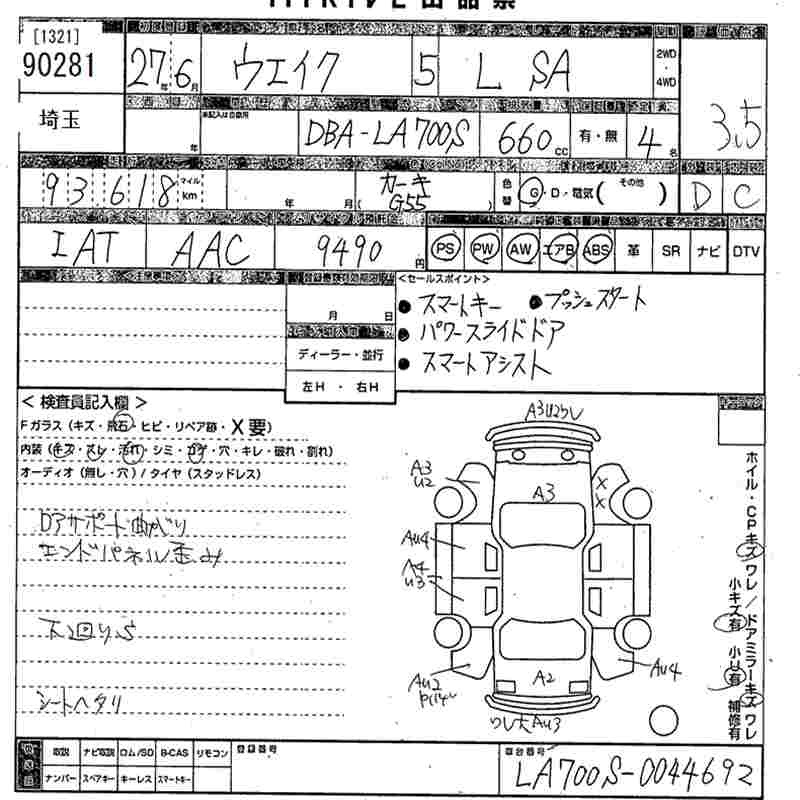 [1321]
90281
27年 6月
ウエイク
5
L SA
2WD
・
4WD
3.5
埼玉
年
未記入は自家用
DBA-LA700S
660cc
有・無
4名
93,618
マイル
km
年 月
(カーキ
G55)
色替
G・D・電気( その他 )
D
C
IAT
AAC
9490円
PS
PW
AW
エアB
ABS
革
SR
ナビ
DTV
月 日
ディーラー・並行
左H ・ 右H
<セールスポイント>
● スマートキー ● プッシュスタート
● パワースライドドア
● スマートアシスト
<検査員記入欄>
Fガラス(キズ・飛石・ヒビ・リペア跡・X要)
内装(キズ・スレ・汚れ・シミ・コゲ・穴・キレ・破れ・割れ)
オーディオ(無し・穴)/タイヤ(スタッドレス)
ロアサポート曲がり
エンドパネル歪み
下回りS
シートヘタリ
A3U2ワレ
A3
U2
A3
X
X
AU4
A4
U3
AU2
A2
AU4
ワレ大AU3
ホイル・CPキズワレ/ドアミラーキズワレ
小キズ有 小U有 補修有
取説
ナビ取説
ロム/SD
B-CAS
リモコン
ナンバー
スペアキー
キーレス
スマートキー
登録番号
車台番号
LA700S-0044692